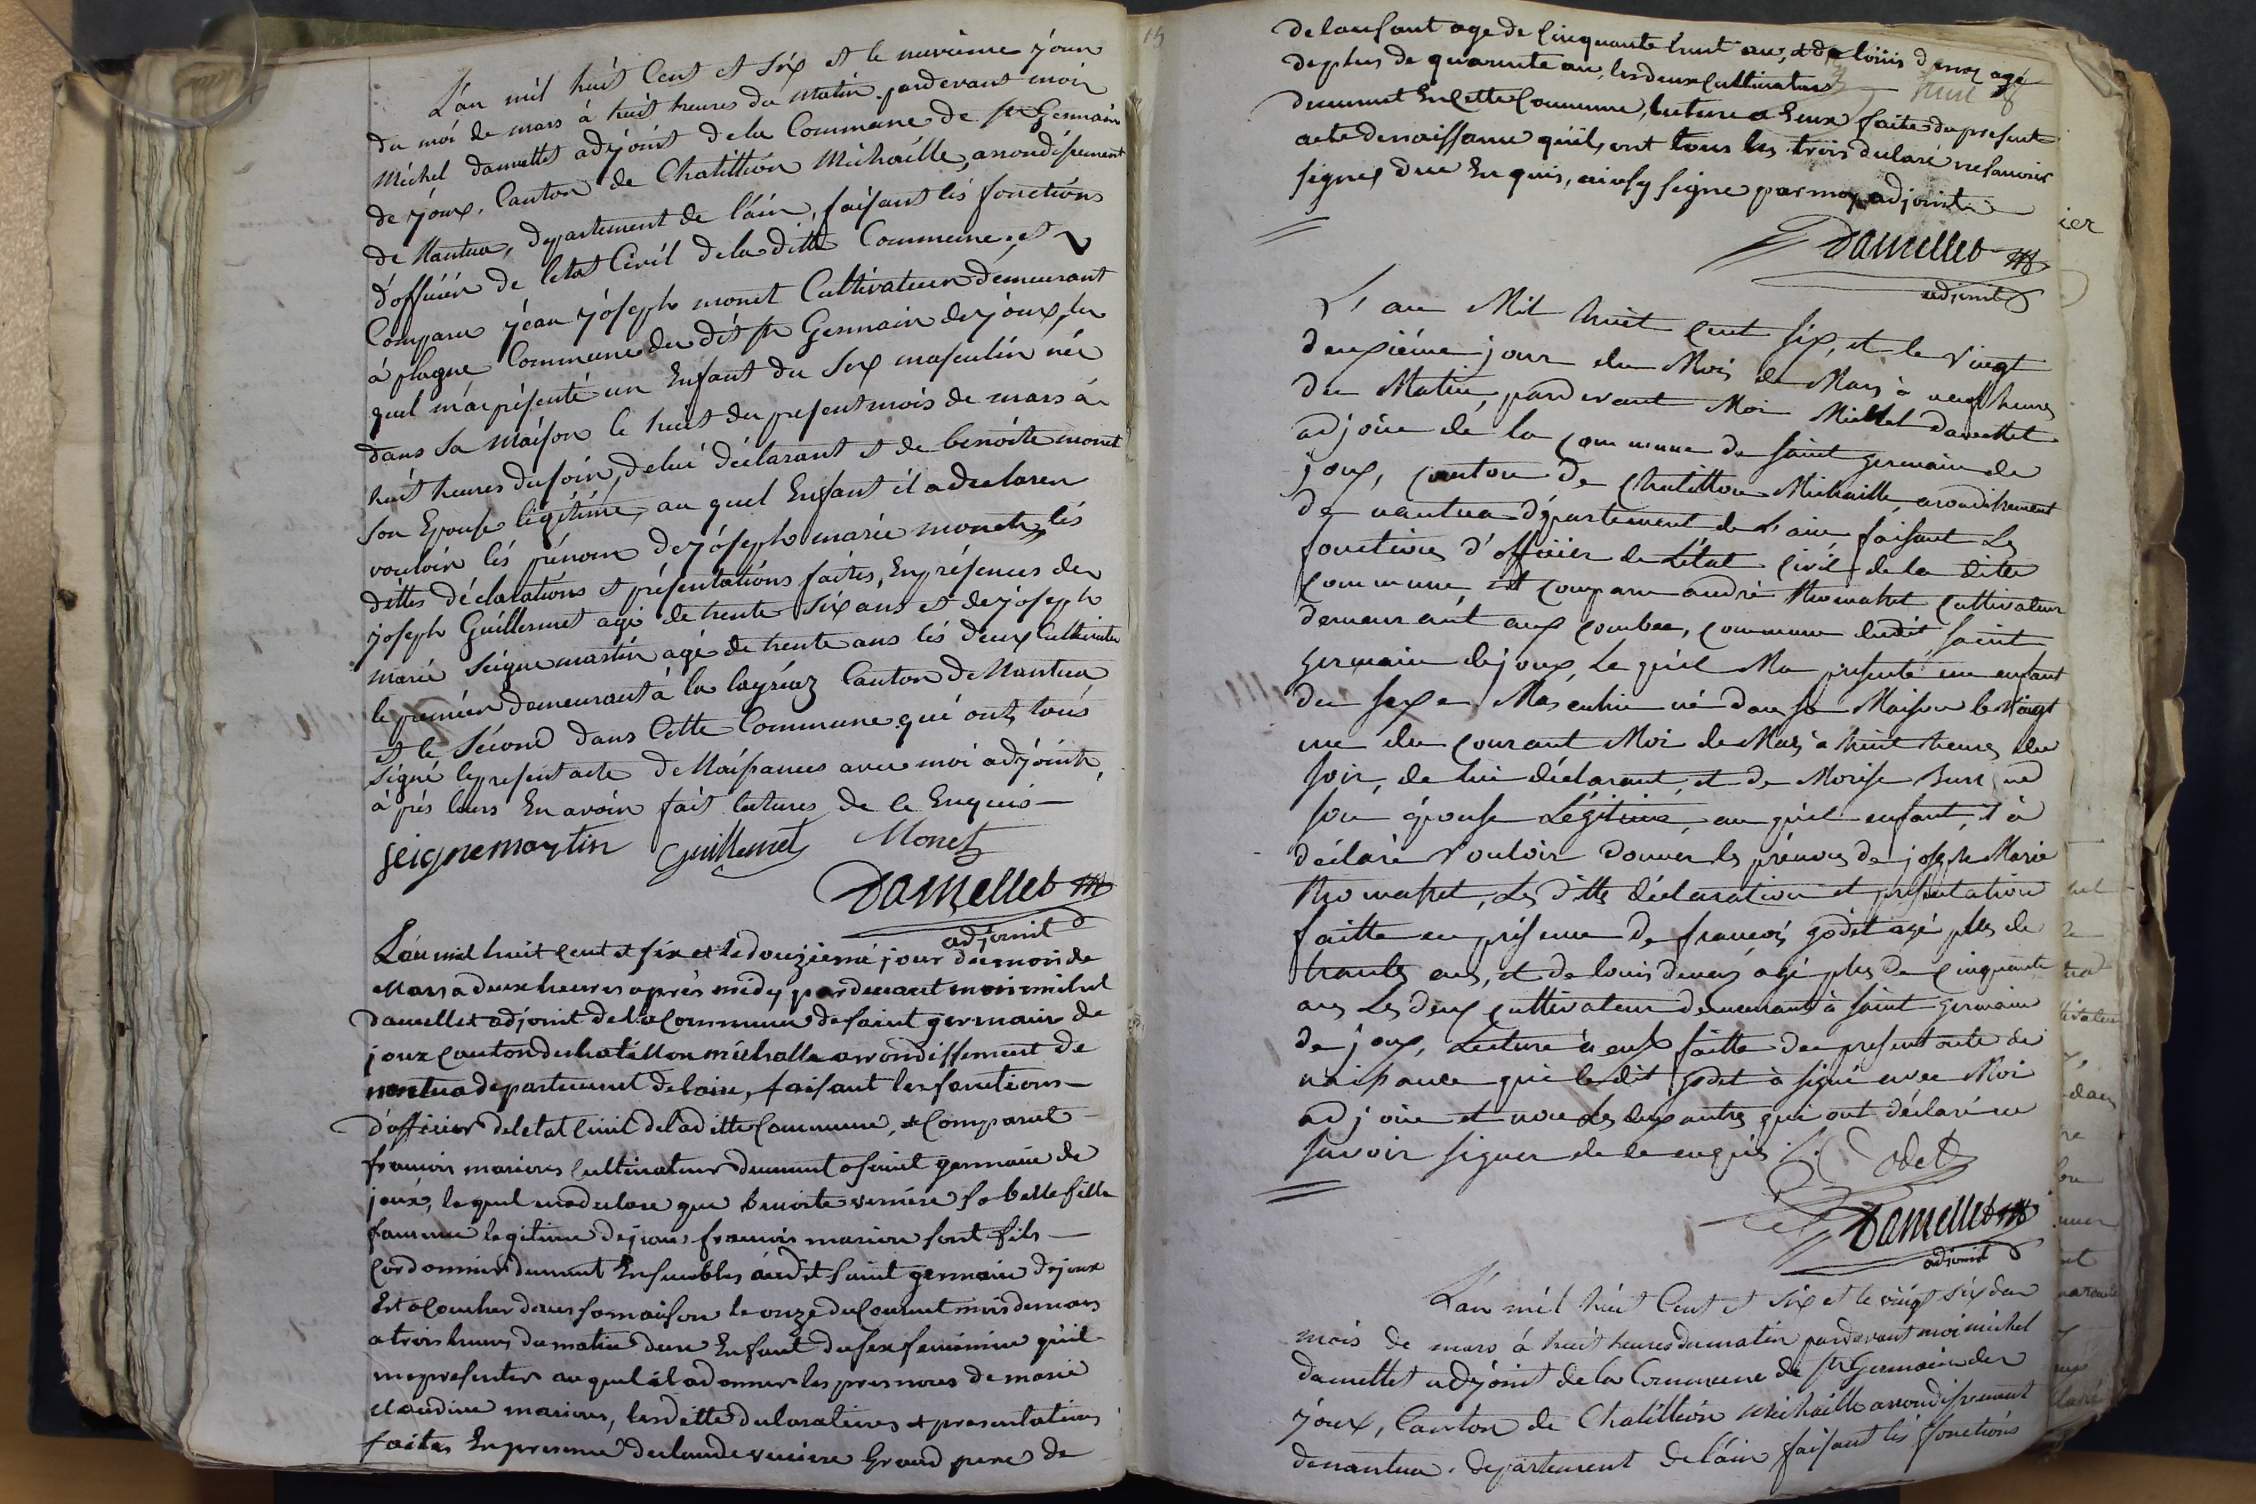 L'an mil huit Cent et six et le neuvieme jour
du moi de mars à huit heures du matin pardevant moi
Michel damellet adjoint de la Commune de st Germain
de joux, Canton de Chatillion Michaille, arrondissement
de Nantua, departement de l'ain, faisant lés fonctions
d'officier de letat Civil de la ditte Commune, et
Comparu jean joseph monet Cultivateur demeurant
à plagne Commune du dit st Germain de joux, le
quel m'a présenté un Enfant du Sex masculin née
dans Sa maison le huit du present mois de mars à
huit heures du soir, de lui déclarant et de benoite monet
Son Epouse légitime, au quel Enfant il a declarer
vouloir lés prénom de joseph marie monet, lés
dittes déclarations et présentations faites, En présences de
joseph Guillermet agé de trente six ans et de joseph
marie Seigne martin agé de trente ans lés deux Cultivateur
le premier demeurant à la layriaz Canton de Nantua
et le Sécond dans Cette Commune qui onts tous
Signé le present acte de Naissances avec moi adjoint,
à prés leurs En avoir fait lectures de ce Enquis
seignemartin Guillermet Monet
Damellet
adjoint
L'an mil huit Cent et six et le douzieme jour du mois de
Mars a deux heures après midy pardevant moi michel
damellet adjoint de la Commune de saint germain de
joux Canton de chatillon michalle arrondissement de
nantua departement de lain, faisant les fonctions
d'officier de letat Civil de la ditte Commune, et Comparut
francois marion Cultivateur demurant a saint germain de
joux, lequel ma declare que benoite verniere sa belle fille
famme legitime de jean francois marion sont fils
Cordonnier demurant Ensembles audit saint germain de joux
Est acoucher dans sa maison le onze du Courant mois de mars
a trois heures du matin dun Enfant du sex feminin qu'il
ma presenter au quel il a donner les prenoms de marie
claudine marion, lesditte declarations et presentations
faites En presence de claude verniere Grand pere de
15
de lanfant age de Cinquante huit an, et de loüis dunoz agé
de plus de quarante an, les deux Cultivateurs
demurant En cette Commune, lecture a Eeux faite du present
acte de naissance qu'il, ont tous les trois declaré ne savoir
signer de ce Enquis, ainsy signe par moy adjoint
Damellet
adjoint
L'an Mil huit Cent Six, et le vingt
deuxiéme jour du Mois de Mars à neuf heures
du Matin, pardevant Moi Michel damellet
adjoin de la commune de saint germain de
joux, canton de Chatillon Michaille, arondissement
de nantua département de L'ain faisant Les
fonctions d'officier de L'état civil de la ditte
commune, est comparu andré thomasset cultivateur
demeurant aux combes, commune dudit saint
germain de joux Le quel Ma présenté un enfant
du sexe Masculin né dans sa Maison le vingt
un du courant Moi de Mars à huit heures du
soir, de lui déclarant, et de Morise
son épouse Légitime, au quel enfant, il à
déclaré vouloir donner les prénoms de joseph Marie
thomasset, Les ditte déclaration et présentation
faitte en présence de francois godet agé plus de
trante ans, et de louis dunoz agé plus de cinquante
ans Les deux cultivateur demeurant à saint germain
de joux, Lecture à eux faitte du present acte de
naissance que le dit godet à signé avec Moi
adjoin et non Les deux autres qui ont déclaré ne
savoir signer de ce enquis
Godet
Damellet
adjoint
L'an mil huit Cent et six et le vingt six du
mois de mars à huit heures du matin pardevant moi michel
damellet adjoint de la Commune de st Germain de
joux, Canton de Chatillion Michaille arrondissement
de nantua, departement de l'ain faisant lés fonctions